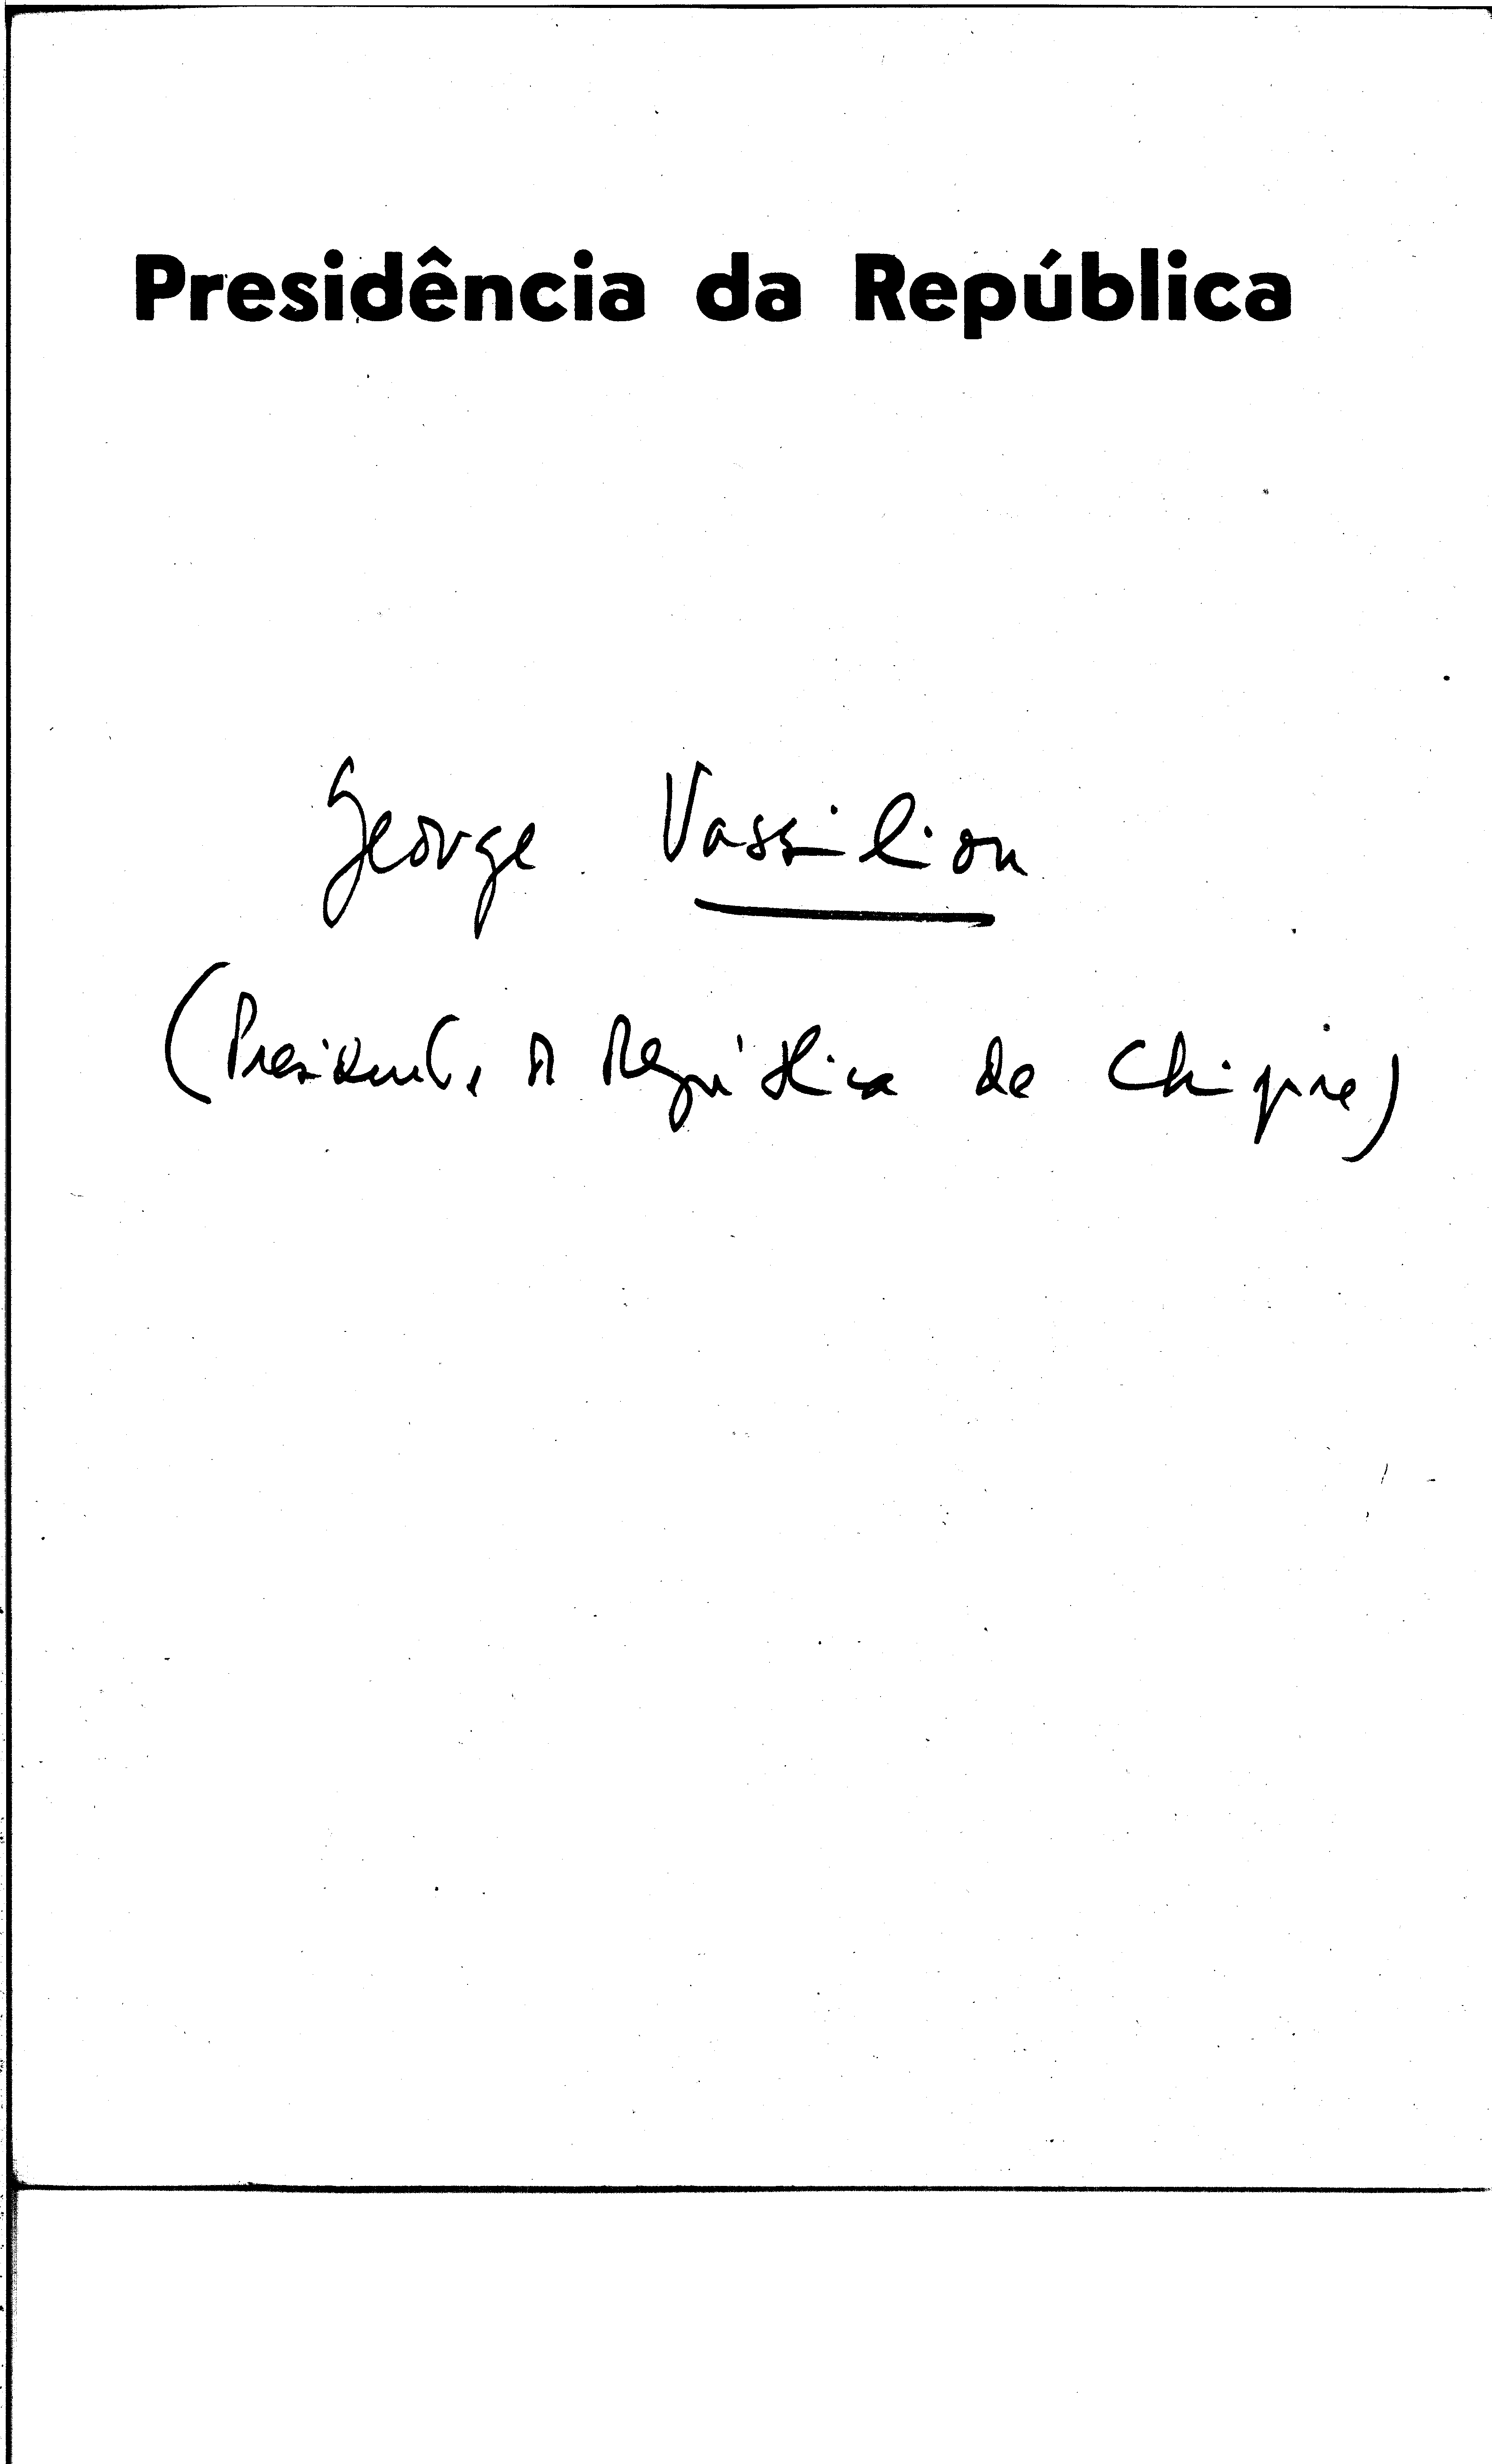 Presidência da República
George Vassiliou
(Presidente da República de Chipre)